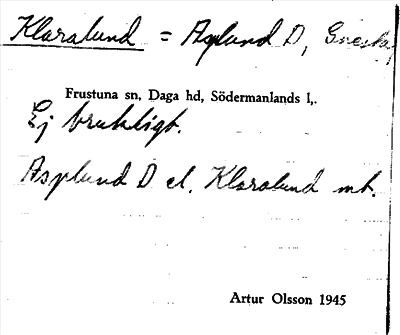 Klaralund = Asplund D, Gnesta,
Frustuna sn, Daga hd, Södermanlands l,.
Ej brukligt.
Asplund D el. Klaralund mt.
Artur Olsson 1945